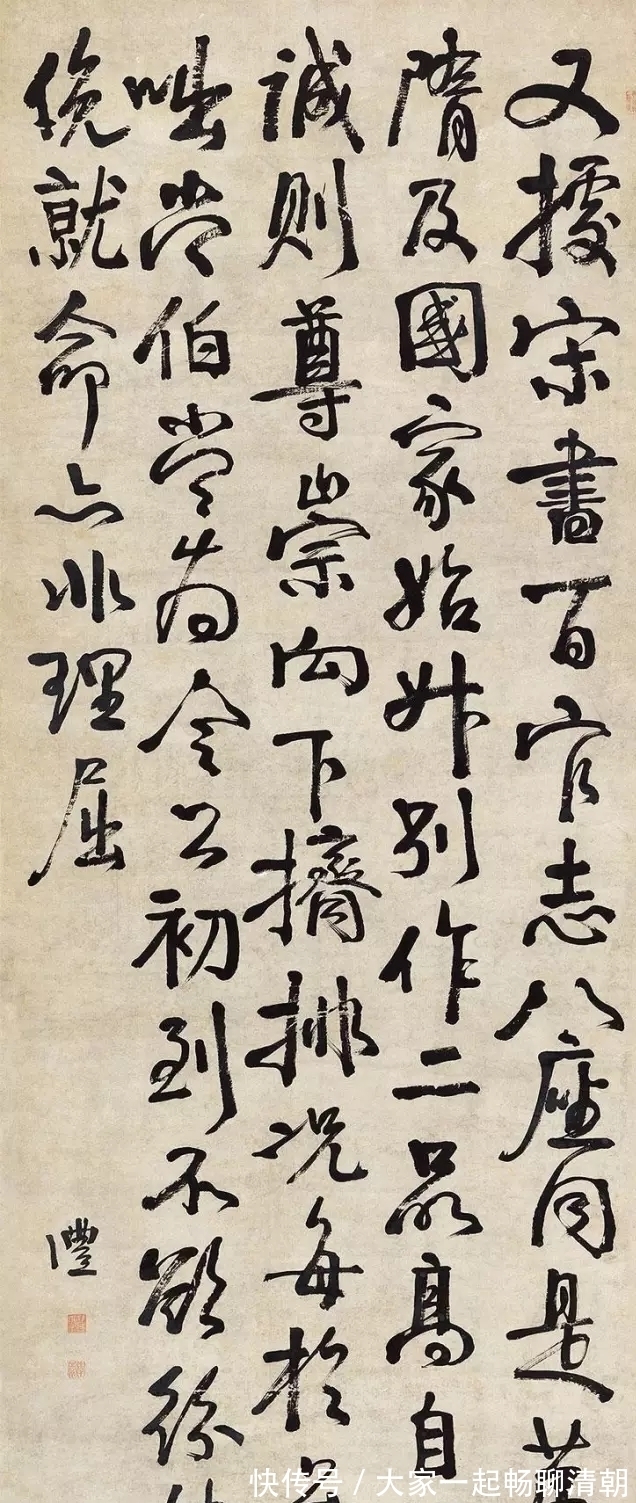 又據宋書百官志八座同是
隋及國家始升別作二品高自
誠則尊崇向下擠排况每於
咄常伯當為令公初到不欲紛
俛就命亦非理屈
澧
快传号 / 大家一起畅聊清朝